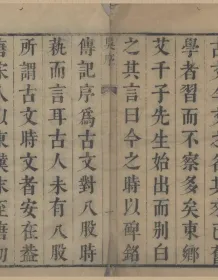 學者習而不察多矣東鄉
艾千子先生始出而別白
之其言曰今之時以碑銘
吳序
一
傳記序爲古文對八股時
蓺而言耳古人未有八股
所謂古文時文者安在蓋
唐宋人以東漢末至唐初